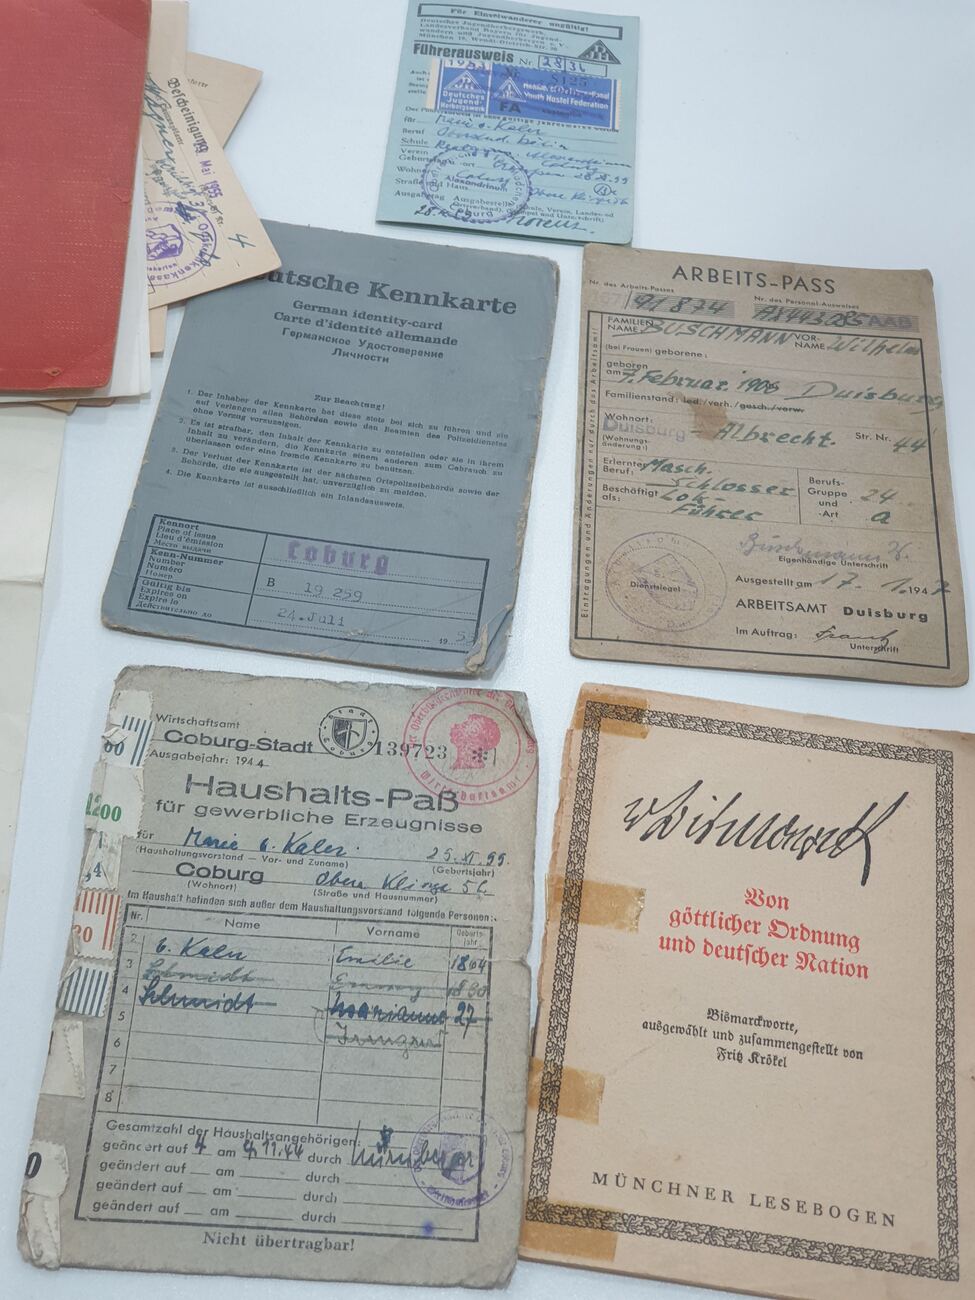 Bescheinigung
Mai 1955
4
Für Einzelwanderer ungültig!
Deutsches Jugendherbergswerk
Landesverband Bayern für Jugend-
wandern und Jugendherbergen e. V.
München 19, Wendl-Dietrich-Str. 20
Führerausweis Nr. 2836
1953
Deutsches
Jugend-
Herbergswerk
Youth Hostel Federation
FA
für
Beruf
Schule
Verein
Geburtstag, -ort
Wohnort
Straße und Haus
Alexandrinum
Coburg
utsche Kennkarte
German identity-card
Carte d'identité allemande
Германское Удостоверение
Личности
Zur Beachtung!
1. Der Inhaber der Kennkarte hat diese stets bei sich zu führen und sie
auf Verlangen allen Behörden sowie den Beamten des Polizeidienstes
ohne Verzug vorzuzeigen.
2. Es ist strafbar, den Inhalt der Kennkarte zu entstellen oder sie in ihrem
Inhalt zu verändern, die Kennkarte einem anderen zum Gebrauch zu
überlassen oder eine fremde Kennkarte zu benutzen.
3. Der Verlust der Kennkarte ist der nächsten Ortspolizeibehörde sowie der
Behörde, die sie ausgestellt hat, unverzüglich zu melden.
4. Die Kennkarte ist ausschließlich ein Inlandsausweis.
Kennort
Place of issue
Lieu d'émission
Место выдачи
Coburg
Kenn-Nummer
Number
Numéro
Номер
B 19 259
Gültig bis
Expires on
Expire le
Действительно до
24. Juli 1953
ARBEITS-PASS
Nr. des Arbeits-Passes
Nr. des Personal-Ausweises
167/91/874
A8443285 AAB
FAMILIEN-
NAME BUSCHMANN VOR-
NAME Wilhelm
(bei Frauen) geborene:
geboren
am 7. Februar 1905 Duisburg
Familienstand: led./verh./gesch./verw.
Wohnort:
Duisburg Albrecht. Str. Nr. 44
(Wohnungs-
änderung:)
Erlernter
Beruf: Masch.
Schlosser
Berufs-
Gruppe 24
und
Art a
Beschäftigt
als: Lok-
Führer
Eintragungen und Änderungen nur durch das Arbeitsamt!
Buschmann W.
Eigenhändige Unterschrift
Dienstsiegel
Ausgestellt am 17. 1. 1947
ARBEITSAMT Duisburg
Im Auftrag:
Unterschrift
Wirtschaftsamt
Coburg-Stadt
139723
Ausgabejahr: 1944
Haushalts-Paß
für gewerbliche Erzeugnisse
für Marie v. Kaler 25. XI. 99.
(Haushaltungsvorstand – Vor- und Zuname) (Geburtsjahr)
Coburg Obere Klinge 5c
(Wohnort) (Straße und Hausnummer)
Im Haushalt befinden sich außer dem Haushaltungsvorstand folgende Personen:
Nr. Name Vorname Geburts-
jahr
2 v. Kaler Emilie 1864
3 Schmidt
4 Schmidt Marianne 27
5
6
7
8
Gesamtzahl der Haushaltsangehörigen:
geändert auf 4 am 9.11.44 durch Nürnberger
geändert auf am durch
geändert auf am durch
geändert auf am durch
Nicht übertragbar!
v Bismarck
Von
göttlicher Ordnung
und deutscher Nation
Bismarckworte,
ausgewählt und zusammengestellt von
Fritz Krökel
MÜNCHNER LESEBOGEN